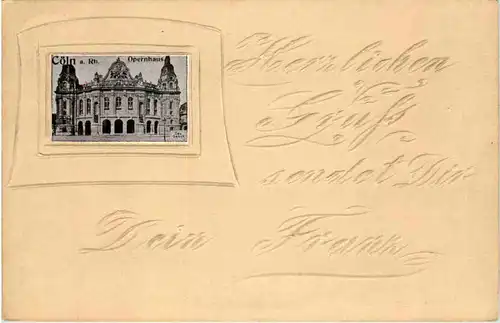 Cöln a. Rh. Opernhaus
Herzlichen
Gruß
sendet Dir
Dein Franz